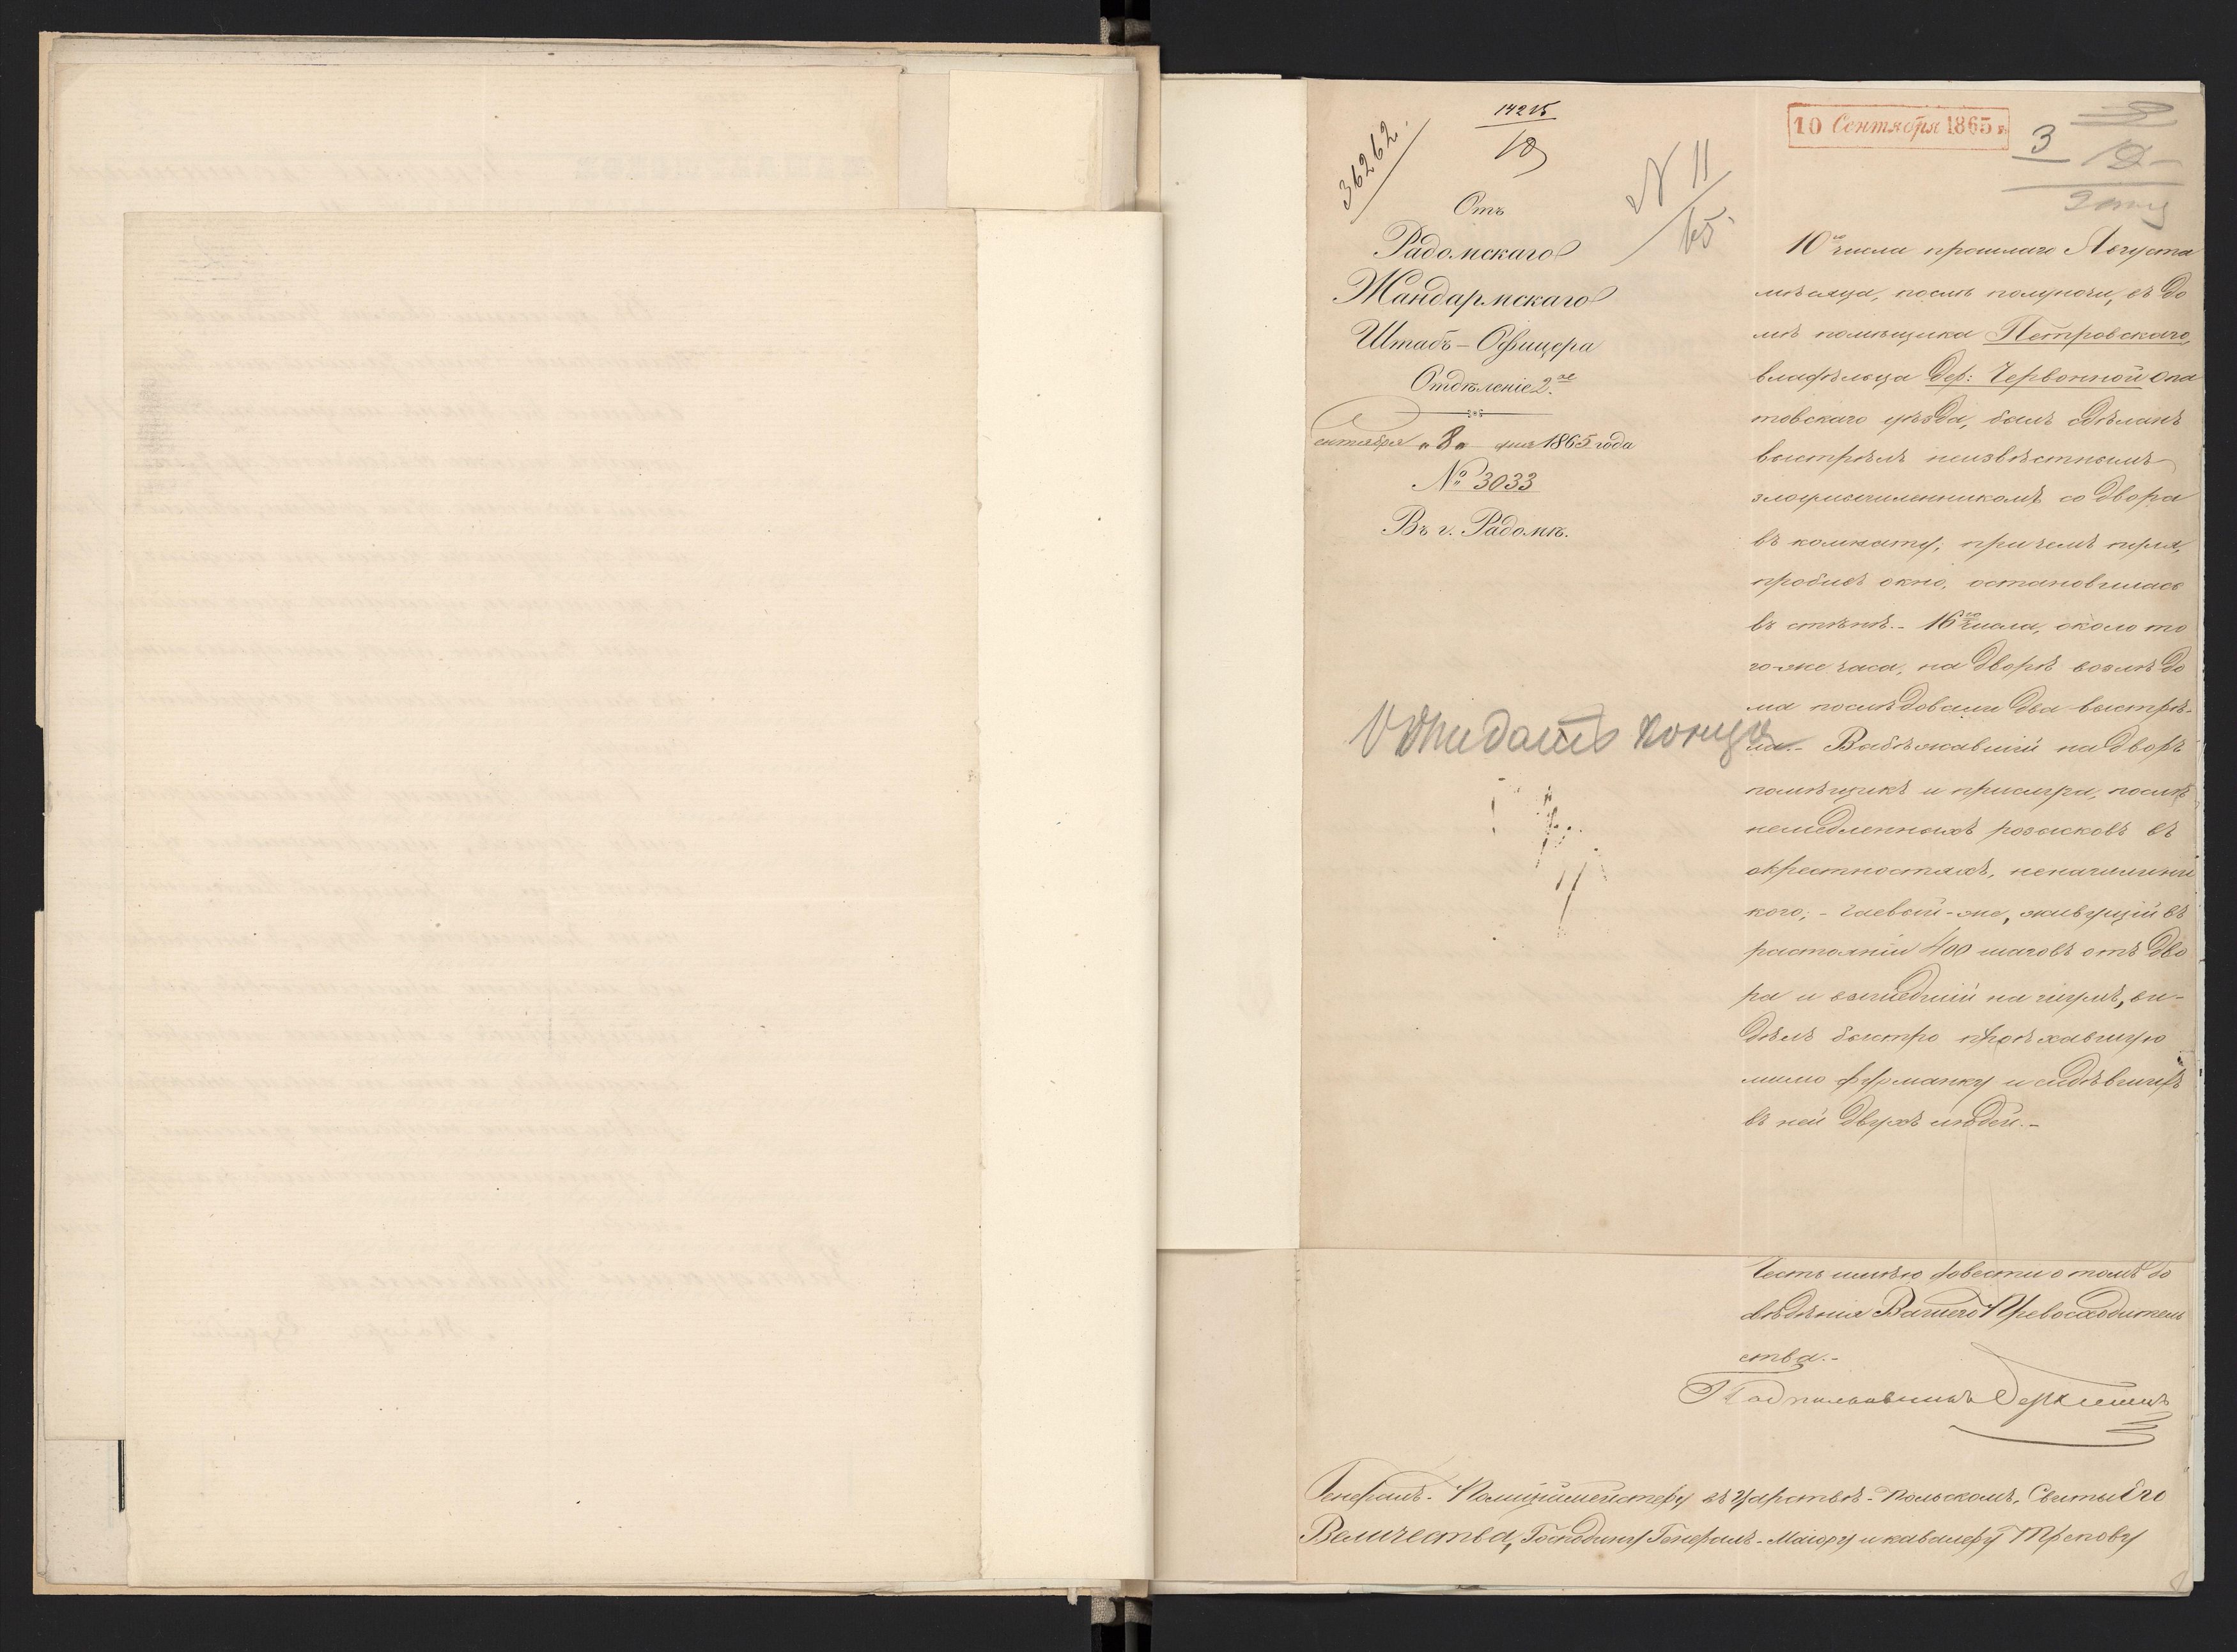 36262.
14215
18
N 11
65
10 Сентября 1865 г.
3
Отъ
Радомскаго
Жандармскаго
Штабъ-Офицера
Отдѣленіе 2.ое
Сентября „8„ дня 1865 года
№ 3033
Въ г. Радомѣ.
Ожидать конца
10го числа прошлаго Августа
мѣсяца, послѣ полуночи, въ до
мѣ помѣщика Петровскаго,
владѣльца дер: Червонной Опа
товскаго уѣзда, былъ сдѣланъ
выстрѣлъ неизвѣстнымъ
злоумышленникомъ со двора
въ комнату; при чемъ пуля,
пробивъ окно, остановилась
въ стѣнѣ.- 16го числа, около то
го-же часа, на дворѣ возлѣ до
ма послѣдовали два выстрѣ-
ла.- Выбѣжавшій на дворъ
помѣщикъ и прислуга, послѣ
немедленныхъ розысковъ въ
окрестностяхъ, ненашли ни
кого; - гаевой-же, живущій въ
растояніи 400 шаговъ отъ дво
ра и вышедшій на шумъ, ви-
дѣлъ быстро проѣхавшую
мимо фурманку и сидѣвшихъ
въ ней двухъ людей.-
Честь имѣю довести о томъ до
свѣдѣнія Вашего Превосходитель
ства.-
Подполковникъ
Генералъ-Полицiймейстеру въ Царствѣ-Польскомъ, Свиты Его
Величества, Господину Генералъ-Маіору и кавалеру Трепову